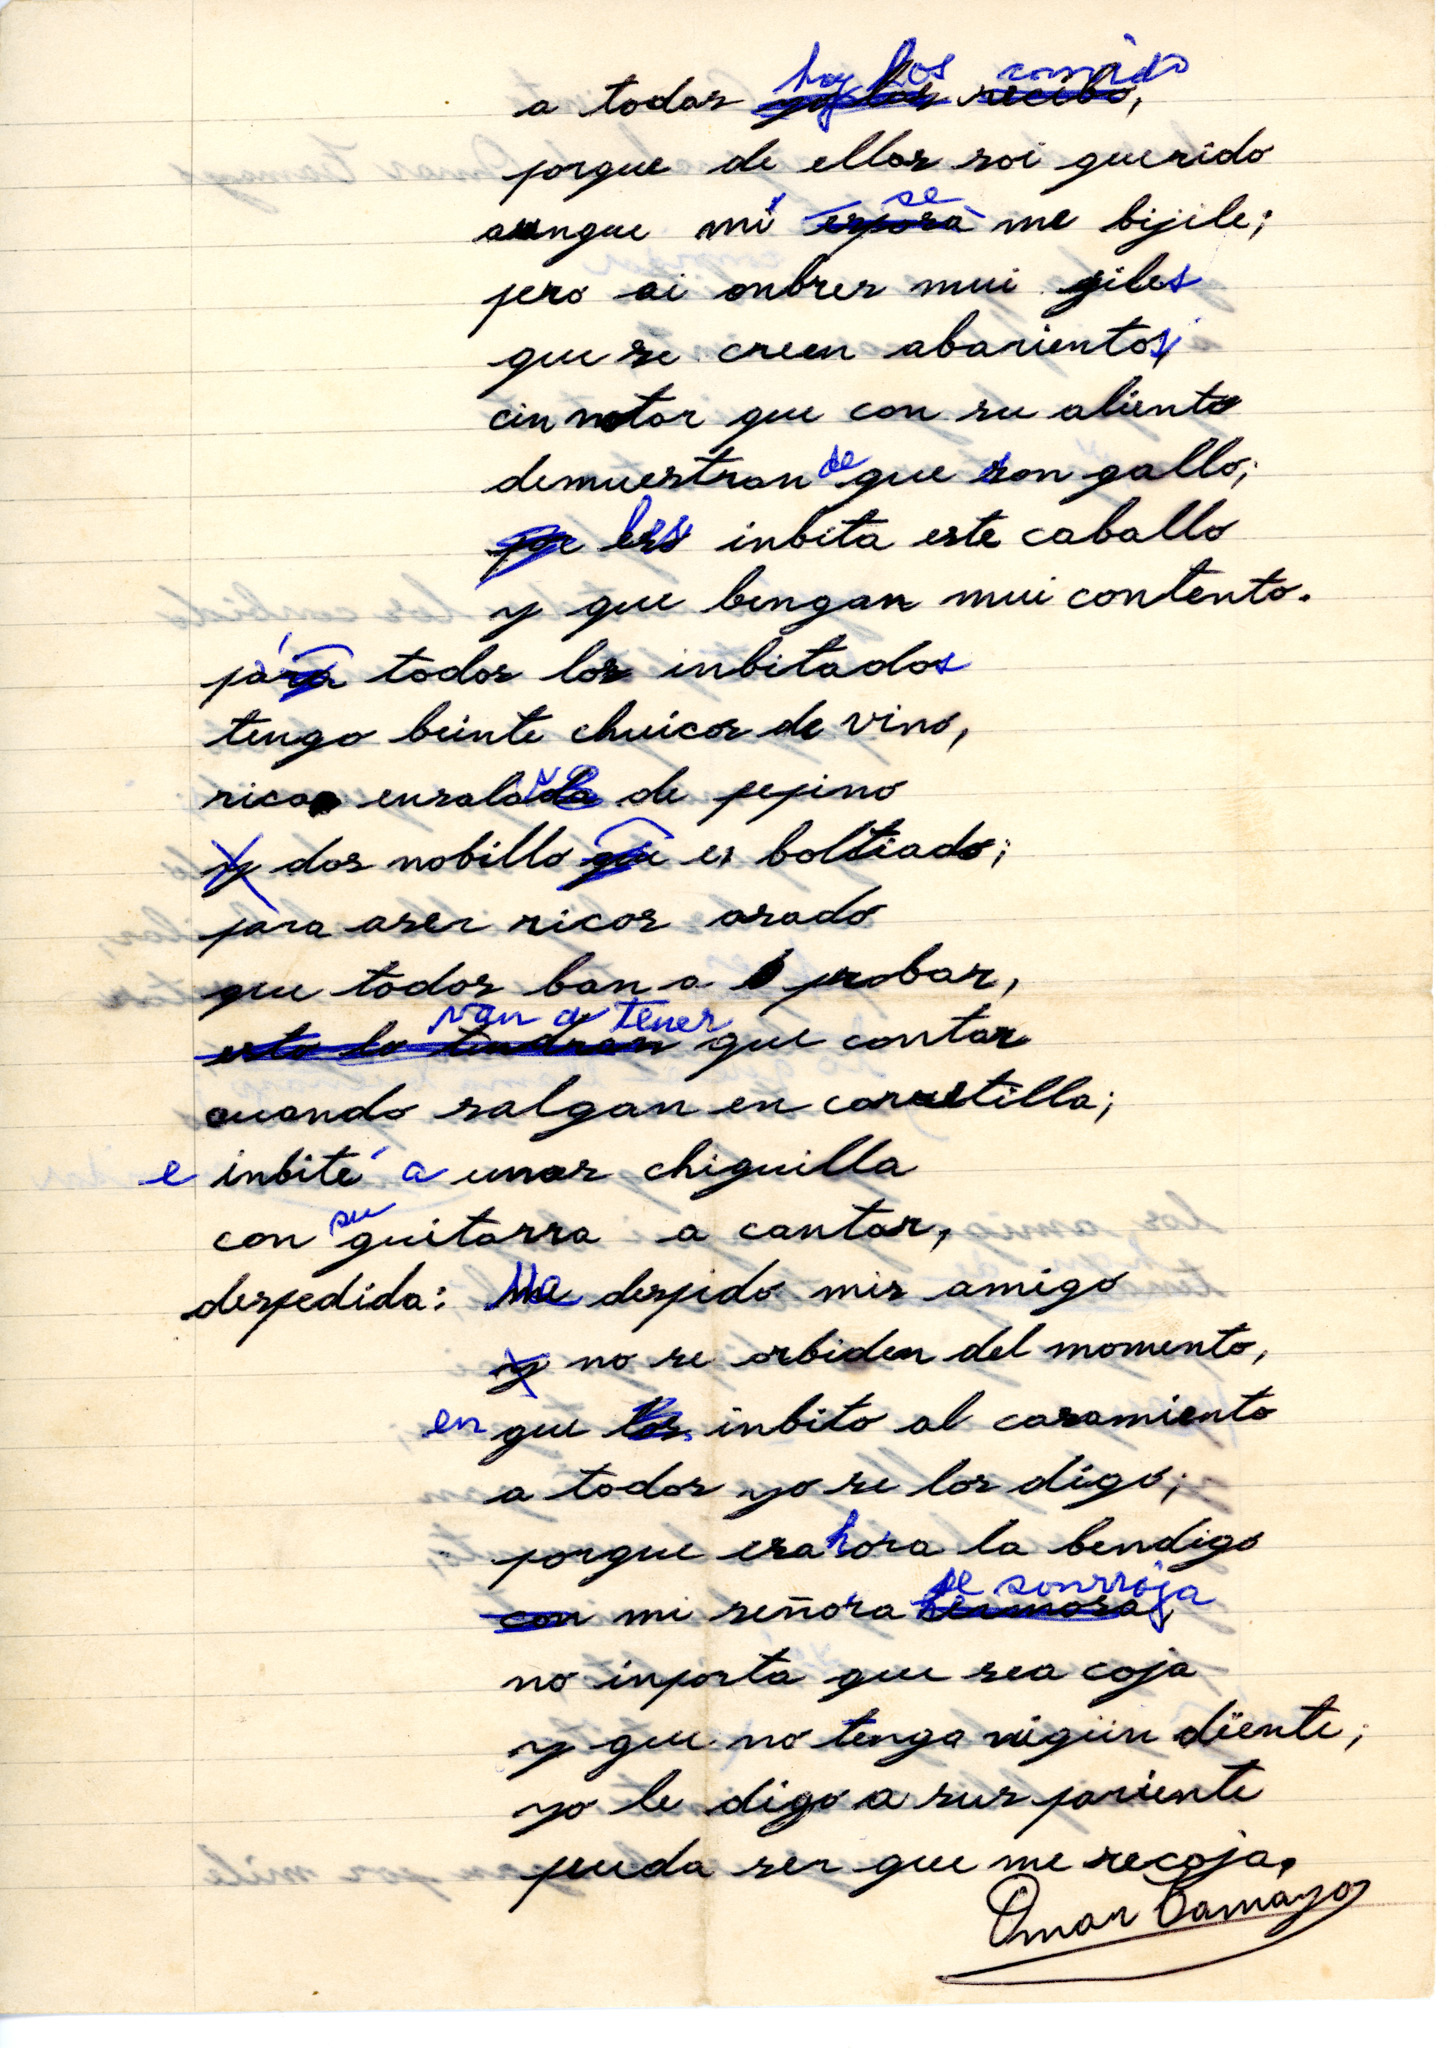 hoy los convido
a todos yo los recibo,
porque de ellos soi querido
se
aunque mi esposa me bijile;
pero ai onbres mui giles
que se creen abarientos
cin notar que con su aliento
demuestran de que son gallo;
por les inbita este caballo
y que bengan mui contento.
para todos los inbitados
tengo beinte chuicos de vino,
rica ensalada de pepino
y dos nobillo que es boltiado;
para aser ricos asado
que todos ban a probar,
van a tener
esto lo tendran que contar
cuando salgan en carretilla;
e inbité a unas chiquilla
su
con guitarra a cantar,
despedida: Me despido mis amigo
y no se orbiden del momento,
en que los inbito al casamiento
a todos yo se los digo;
porque esa hora la bendigo
se sonrroja
con mi señora hermosa,
no inporta que sea coja
y que no tenga nigún diente;
yo le digo a sus pariente
pueda ser que me recoja.
Omar Tamayo